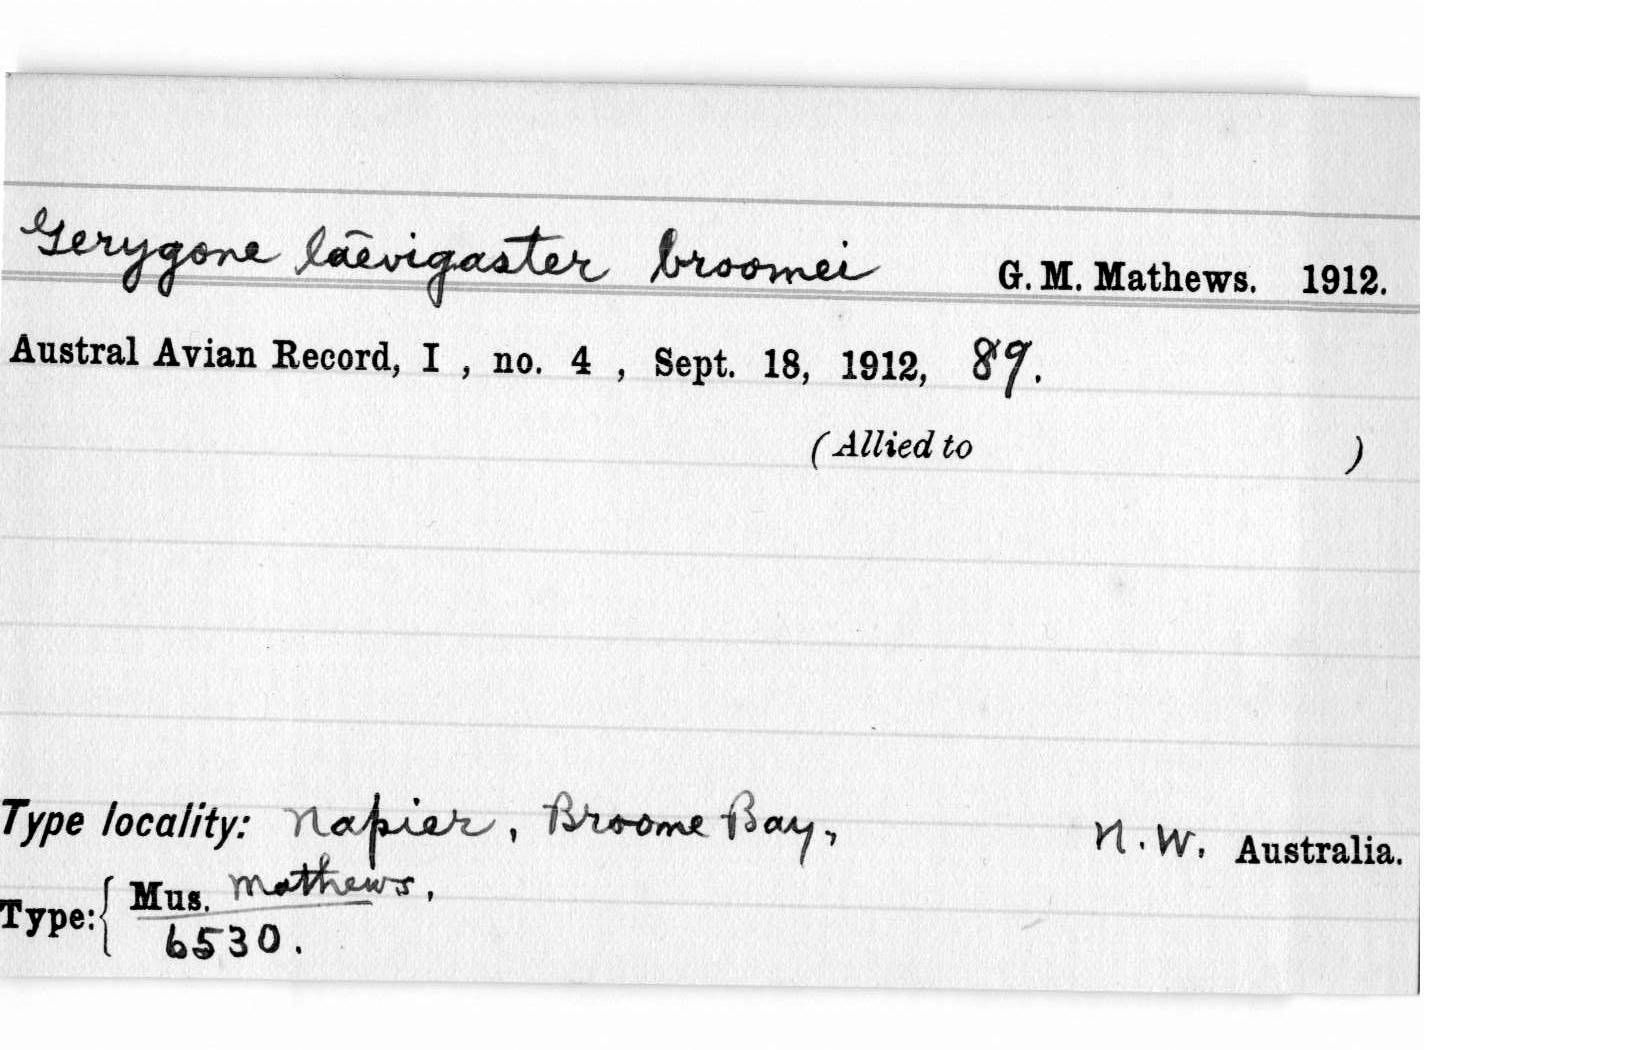 Gerygone laevigaster broomei G. M. Mathews. 1912.
Austral Avian Record, I , no. 4 , Sept. 18, 1912, 89.
(Allied to )
Type locality: Napier, Broome Bay, N. W. Australia.
Type: { Mus. Mathews,
6530.